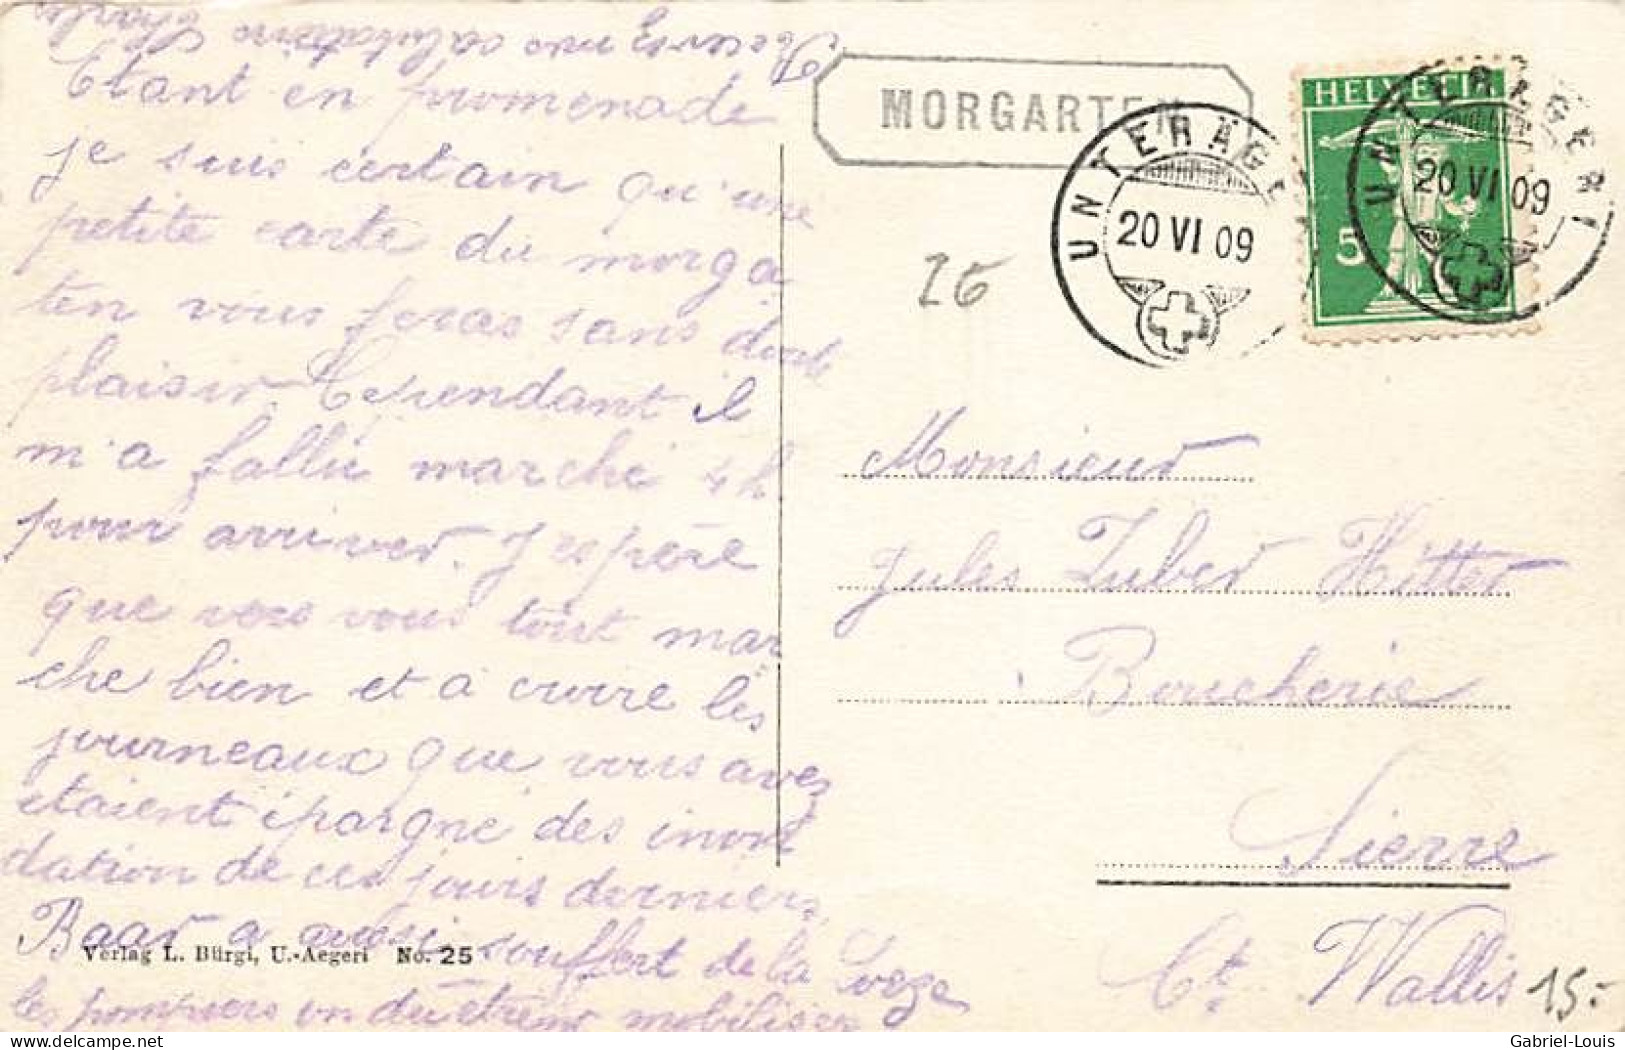 Recevez mes salutations Charles
Etant en promenade
je suis certain qu'une
petite carte du morga
ten vous feras sans doute
plaisir. Cependant il
m'a fallu marché 4 h
pour arriver. J'espère
que vers vous tout mar
che bien et a croire les
journeaux que vous avez
étaient épargné des inon
dation de ces jours derniers.
Baar a aussi souffert de la Loreze
les pompiers on du étreint mobiliser
Verlag L. Bürgi, U.-Aegeri No. 25
MORGARTEN
UNTERÄGE
20 VI 09
HELVETIA
5
UNTERÄGERI
20 VI 09
26
Monsieur
Jules Zuber Hitter
Boucherie
Sierre
Ct. Wallis
15.-
Gabriel-Louis